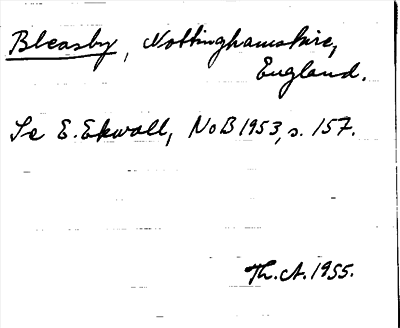 Bleasby, Nottinghamshire,
England.
Se E. Ekwall, NoB 1953, s. 157.
Th. A. 1955.